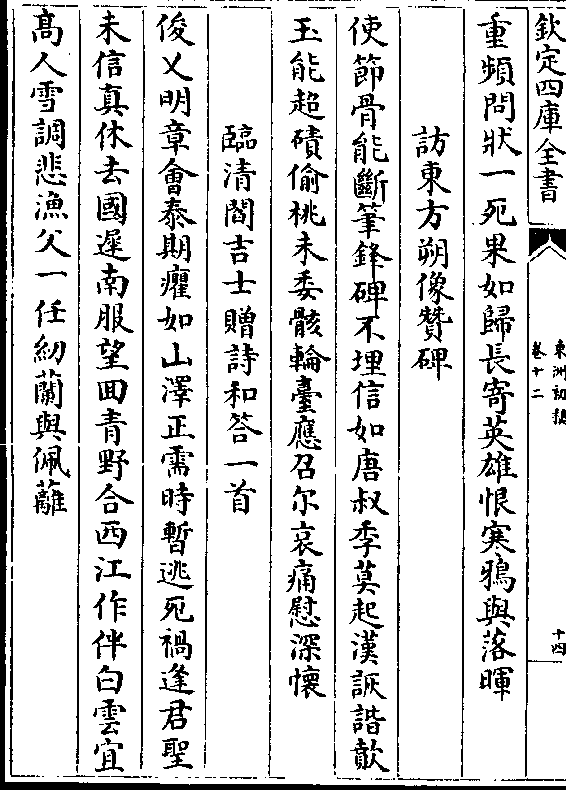 欽定四庫全書
東洲初稿
卷十二
十四
重頻問狀一死果如歸長寄英雄恨寒鴉與落暉
訪東方朔像贊碑
使節骨能斷筆鋒碑不埋信如唐叔季莫起漢詼諧歕
玉能超磧偷桃未委骸輪臺應召尔哀痛慰深懷
臨清閻吉士贈詩和答一首
俊乂明章會泰期癯如山澤正需時暫逃死禍逢君聖
未信真休去國遲南服望囬青野合西江作伴白雲宜
髙人雪調悲漁父一任紉蘭與佩蘺